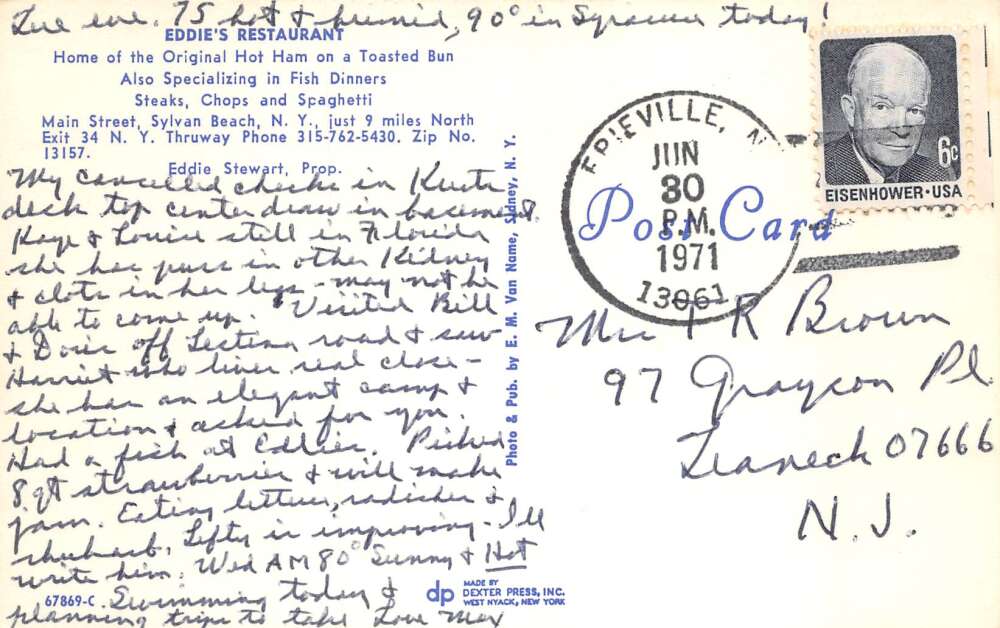 Tue eve. 75 hot & humid, 90° in Syracuse today!
EDDIE'S RESTAURANT
Home of the Original Hot Ham on a Toasted Bun
Also Specializing in Fish Dinners
Steaks, Chops and Spaghetti
Main Street, Sylvan Beach, N. Y., just 9 miles North
Exit 34 N. Y. Thruway Phone 315-762-5430. Zip No.
13157.
Eddie Stewart, Prop.
My cancelled checks in
desk top center draw in basement.
Kaye & Louise still in Florida
she has puss in other Kidney
& clots in her legs - may not be
able to come up. Visited Bill
& Doris off road & saw
Harriet who lives real close -
she has an elegant camp &
location & asked for you.
Had a fish at Eddies. Picked
8 qt strawberries & will make
jam. Eating lettuce, radishes &
rhubarb. Lefty is improving - I'll
write him. Wed AM 80° Sunny & Hot
Swimming today &
planning trips to take Love Max
67869-C
Photo & Pub. by E. M. Van Name, Sidney, N. Y.
dp MADE BY
DEXTER PRESS, INC.
WEST NYACK, NEW YORK
Post Card
ERIEVILLE, N
JUN
30
P.M.
1971
13061
6c
EISENHOWER·USA
R Brown
97 Grayson Pl
Teaneck 07666
N.J.